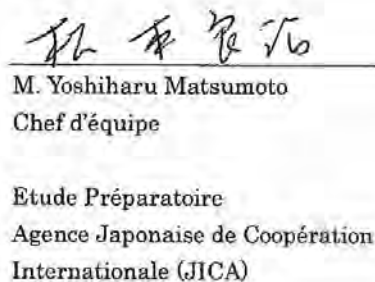 松本良治
M. Yoshiharu Matsumoto
Chef d'équipe
Etude Préparatoire
Agence Japonaise de Coopération
Internationale (JICA)